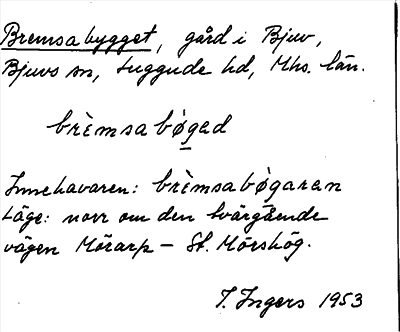 Bremsabygget, gård i Bjuv,
Bjuvs sn, Luggude hd, Mhs. län.
brèmsabøged
Innehavaren: brèmsabøgaren
Läge: norr om den tvärgående
vägen Mörarp - St. Mörshög.
I. Ingers 1953